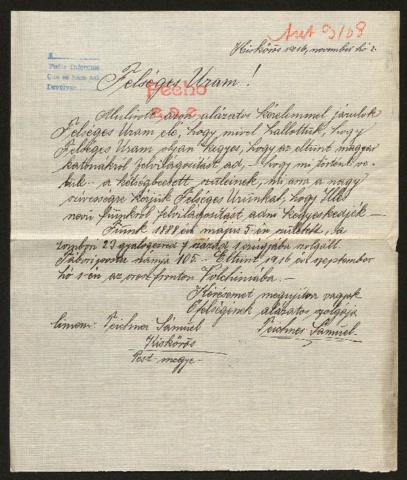 Kiskőrös 1916, november hó 1.
Felséges Uram!
Pecho
Alulírott azon alázatos kérelemmel járulok
Felséges Uram elé, hogy mivel hallottuk, hogy
Felséges Uram olyan kegyes, hogy az eltünt magyar
katonákról felvilágosítást ad, – hogy mi történt ve-
lük – a kétségbeesett szüleinek, mi arra a nagy
szivességre kérjük Felséges Urunkat, hogy
nevü fiunkról felvilágosítást adni kegyeskedjék –
Fiunk 1888 évi május 5-én született, a
23 gyalogezred 7 század 1 szolgált.
Tábori posta száma 105. – Eltünt 1916 évi szeptember
hó 1-én az orosz fronton Volchiniában. –
Kérésemet megujítva vagyok
Őfelségének alázatos szolgája
Címem: Teichner Sámuel Teichner Sámuel
Kiskőrös
Pest megye